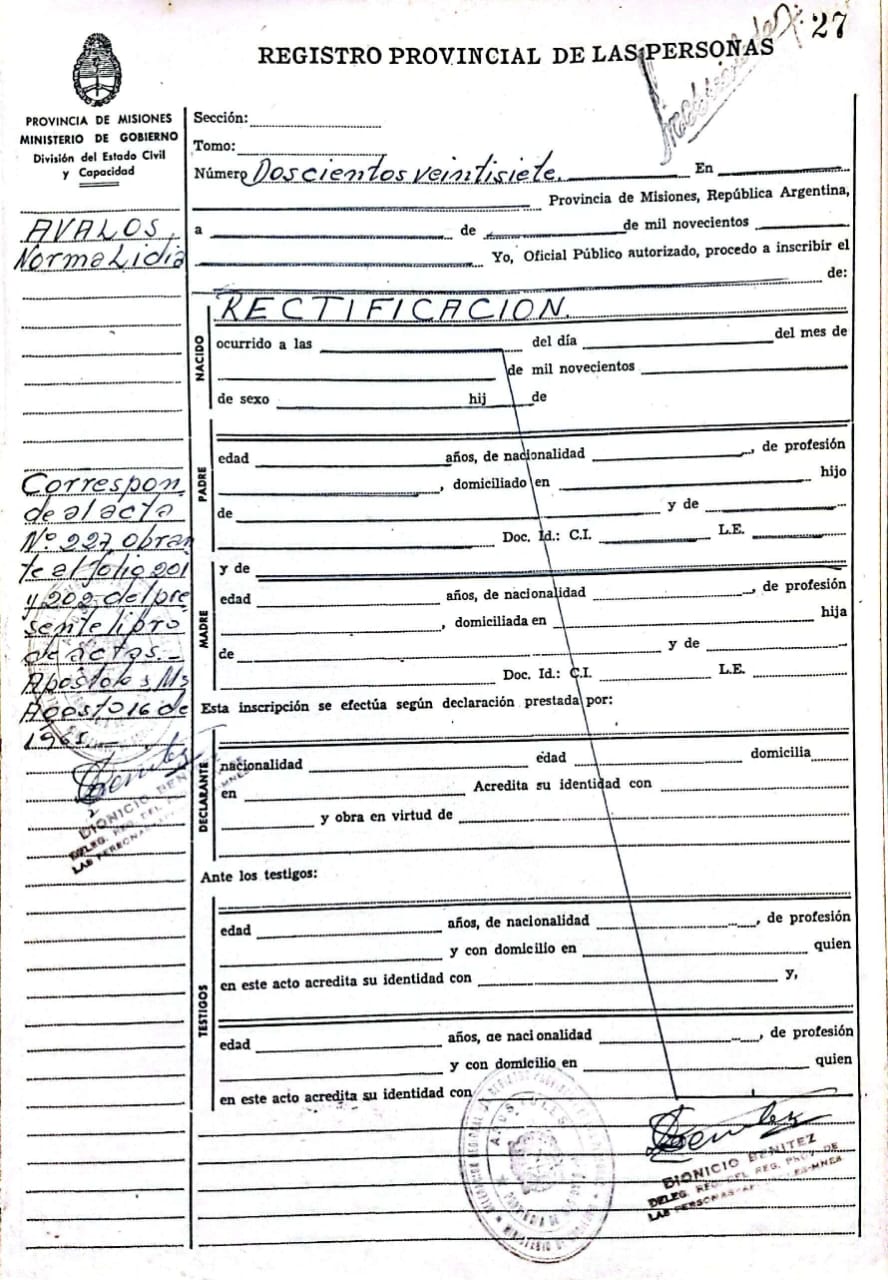 27
REGISTRO PROVINCIAL DE LAS PERSONAS
PROVINCIA DE MISIONES
MINISTERIO DE GOBIERNO
División del Estado Civil
y Capacidad
AVALOS,
Norma Lidia
Correspon
de al acta
Nº 227 obran
te al folio 201
y 202 del pre
sente libro
de actas.-
Apóstoles Ms
Agosto 16 de
1965
Benitez
DIONICIO BENITEZ
DELEG. REG. DEL
LAS PERSONAS
Sección:
Tomo:
Número Doscientos veintisiete. En
Provincia de Misiones, República Argentina,
a de de mil novecientos
Yo, Oficial Público autorizado, procedo a inscribir el
de:
RECTIFICACION.
NACIDO
ocurrido a las del día del mes de
de mil novecientos
de sexo hij de
PADRE
edad años, de nacionalidad , de profesión
, domiciliado en hijo
de y de
Doc. Id.: C.I. L.E.
MADRE
y de
edad años, de nacionalidad , de profesión
, domiciliada en hija
de y de
Doc. Id.: C.I. L.E.
Esta inscripción se efectúa según declaración prestada por:
DECLARANTE
nacionalidad edad domicilia
en Acredita su identidad con
y obra en virtud de
Ante los testigos:
TESTIGOS
edad años, de nacionalidad , de profesión
y con domicilio en quien
en este acto acredita su identidad con y,
edad años, de nacionalidad , de profesión
y con domicilio en quien
en este acto acredita su identidad con
Benitez
DIONICIO BENITEZ
DELEG. REG. DEL REG. PROV. DE
LAS PERSONAS